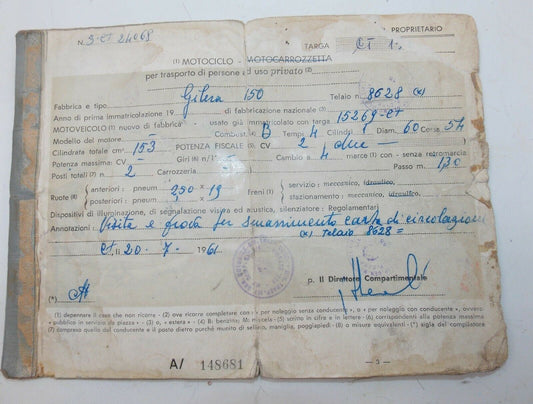 PROPRIETARIO
N. 3-CT 24068
TARGA CT 1
(1) MOTOCICLO - MOTOCARROZZETTA
per trasporto di persone ad uso privato (2)
Fabbrica e tipo Gilera 150 Telaio n. 8628 (x)
Anno di prima immatricolazione 19 di fabbricazione nazionale (3)
MOTOVEICOLO (1) nuovo di fabbrica - usato già immatricolato con targa 15269-CT
Modello del motore Combust. B Tempi 4 Cilindri 1 Diam. 60 Corsa 54
Cilindrata totale cm³ 153 POTENZA FISCALE CV 2 due
Potenza massima: CV Giri IN n. Cambio a 4 marce (1) con - senza retromarcia
Posti totali (7) n. 2 Carrozzeria Passo m. 1,30
Ruote (8) anteriori: pneum. 250 x 19 Freni (1) servizio: meccanico, idraulico.
posteriori: pneum. x stazionamento: meccanico, idraulico.
Dispositivi di illuminazione, di segnalazione visiva ed acustica, silenziatore: Regolamentari
Annotazioni: Visita e prova per smarrimento carta di circolazione
(x) Telaio 8628 =
CT, lì 20-7-1961
p. Il Direttore Compartimentale
(*)
(1) depennare il caso che non ricorre - (2) ove ricorre completare con « - per noleggio senza conducente », o « per noleggio con conducente », ovvero
« pubblico in servizio da piazza » - (3) o, « estera » - (4) B: benzina; M: miscela - (5) scritto in cifre e in lettere - (6) corrispondenti alla potenza massima
(7) compreso quello del conducente e il posto dietro purché munito di sellino, maniglia, poggiapiedi - (8) o misure equivalenti - (*) sigla del compilatore
A/ 148681
— 3 —